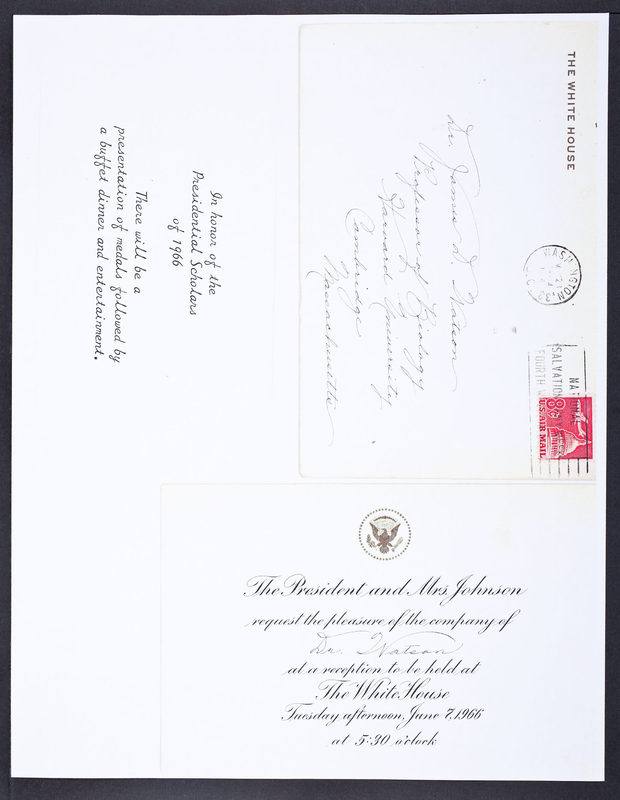 THE WHITE HOUSE
WASHINGTON, D.C.
NATIONAL
SALVATION ARMY
FOURTH W
8¢
U.S. AIR MAIL
Dr. James D. Watson
Professor of Biology
Harvard University
Cambridge
Massachusetts
In honor of the
Presidential Scholars
of 1966
There will be a
presentation of medals followed by
a buffet dinner and entertainment.
The President and Mrs. Johnson
request the pleasure of the company of
Dr. Watson
at a reception to be held at
The White House
Tuesday afternoon, June 7, 1966
at 5:30 o'clock